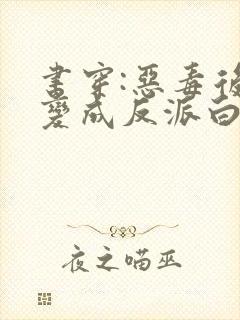 書穿:惡毒後
變成反派白
夜之喵巫